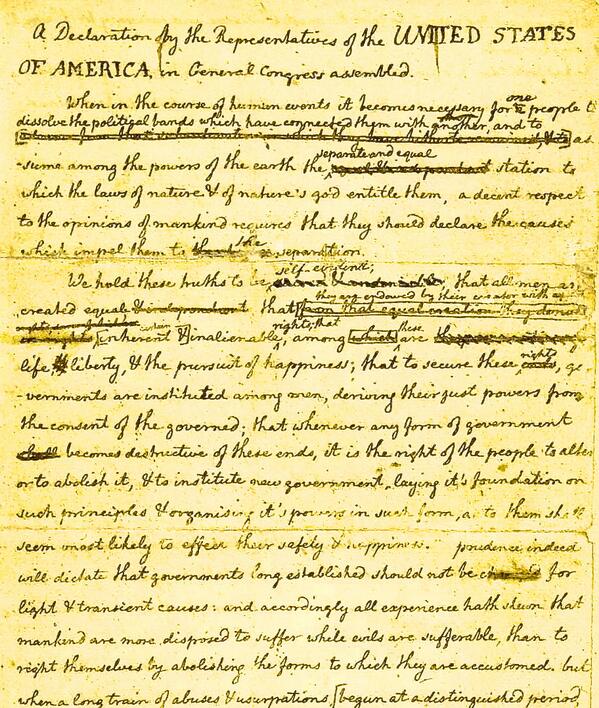 A Declaration by the Representatives of the UNITED STATES
OF AMERICA, in General Congress assembled.
When in the course of human events it becomes necessary for one people to
dissolve the political bands which have connected them with another, and to
as
separate and equal
-sume among the powers of the earth the station to
which the laws of nature & of nature's god entitle them, a decent respect
to the opinions of mankind requires that they should declare the causes
which impel them to the separation.
self-evident;
We hold these truths to be that all men are
they are endowed by their creator with
created equal & independant that from that equal creation they derive
certain
rights; that
these
in rights inherent & inalienable, among which are
rights
life & liberty, & the pursuit of happiness; that to secure these ends, go
-vernments are instituted among men, deriving their just powers from
the consent of the governed; that whenever any form of government
shall becomes destructive of these ends, it is the right of the people to alter
or to abolish it, & to institute new government, laying it's foundation on
such principles & organising it's powers in such form, as to them shall
seem most likely to effect their safety & happiness. prudence indeed
will dictate that governments long established should not be changed for
light & transient causes: and accordingly all experience hath shewn that
mankind are more disposed to suffer while evils are sufferable, than to
right themselves by abolishing the forms to which they are accustomed. but
when a long train of abuses & usurpations, [begun at a distinguished period,